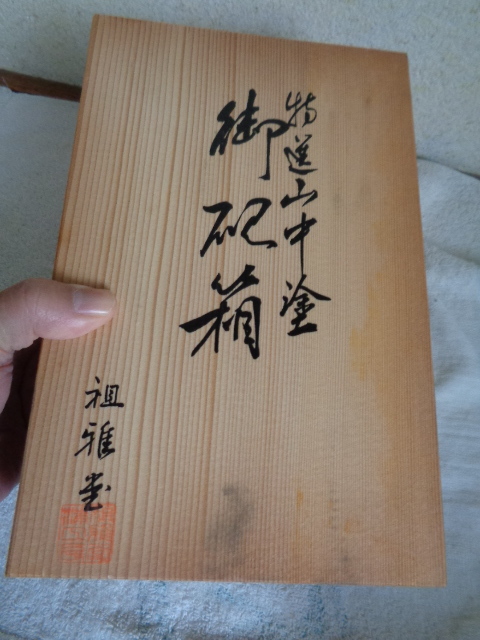 特選山中塗
御硯箱
祖雅堂